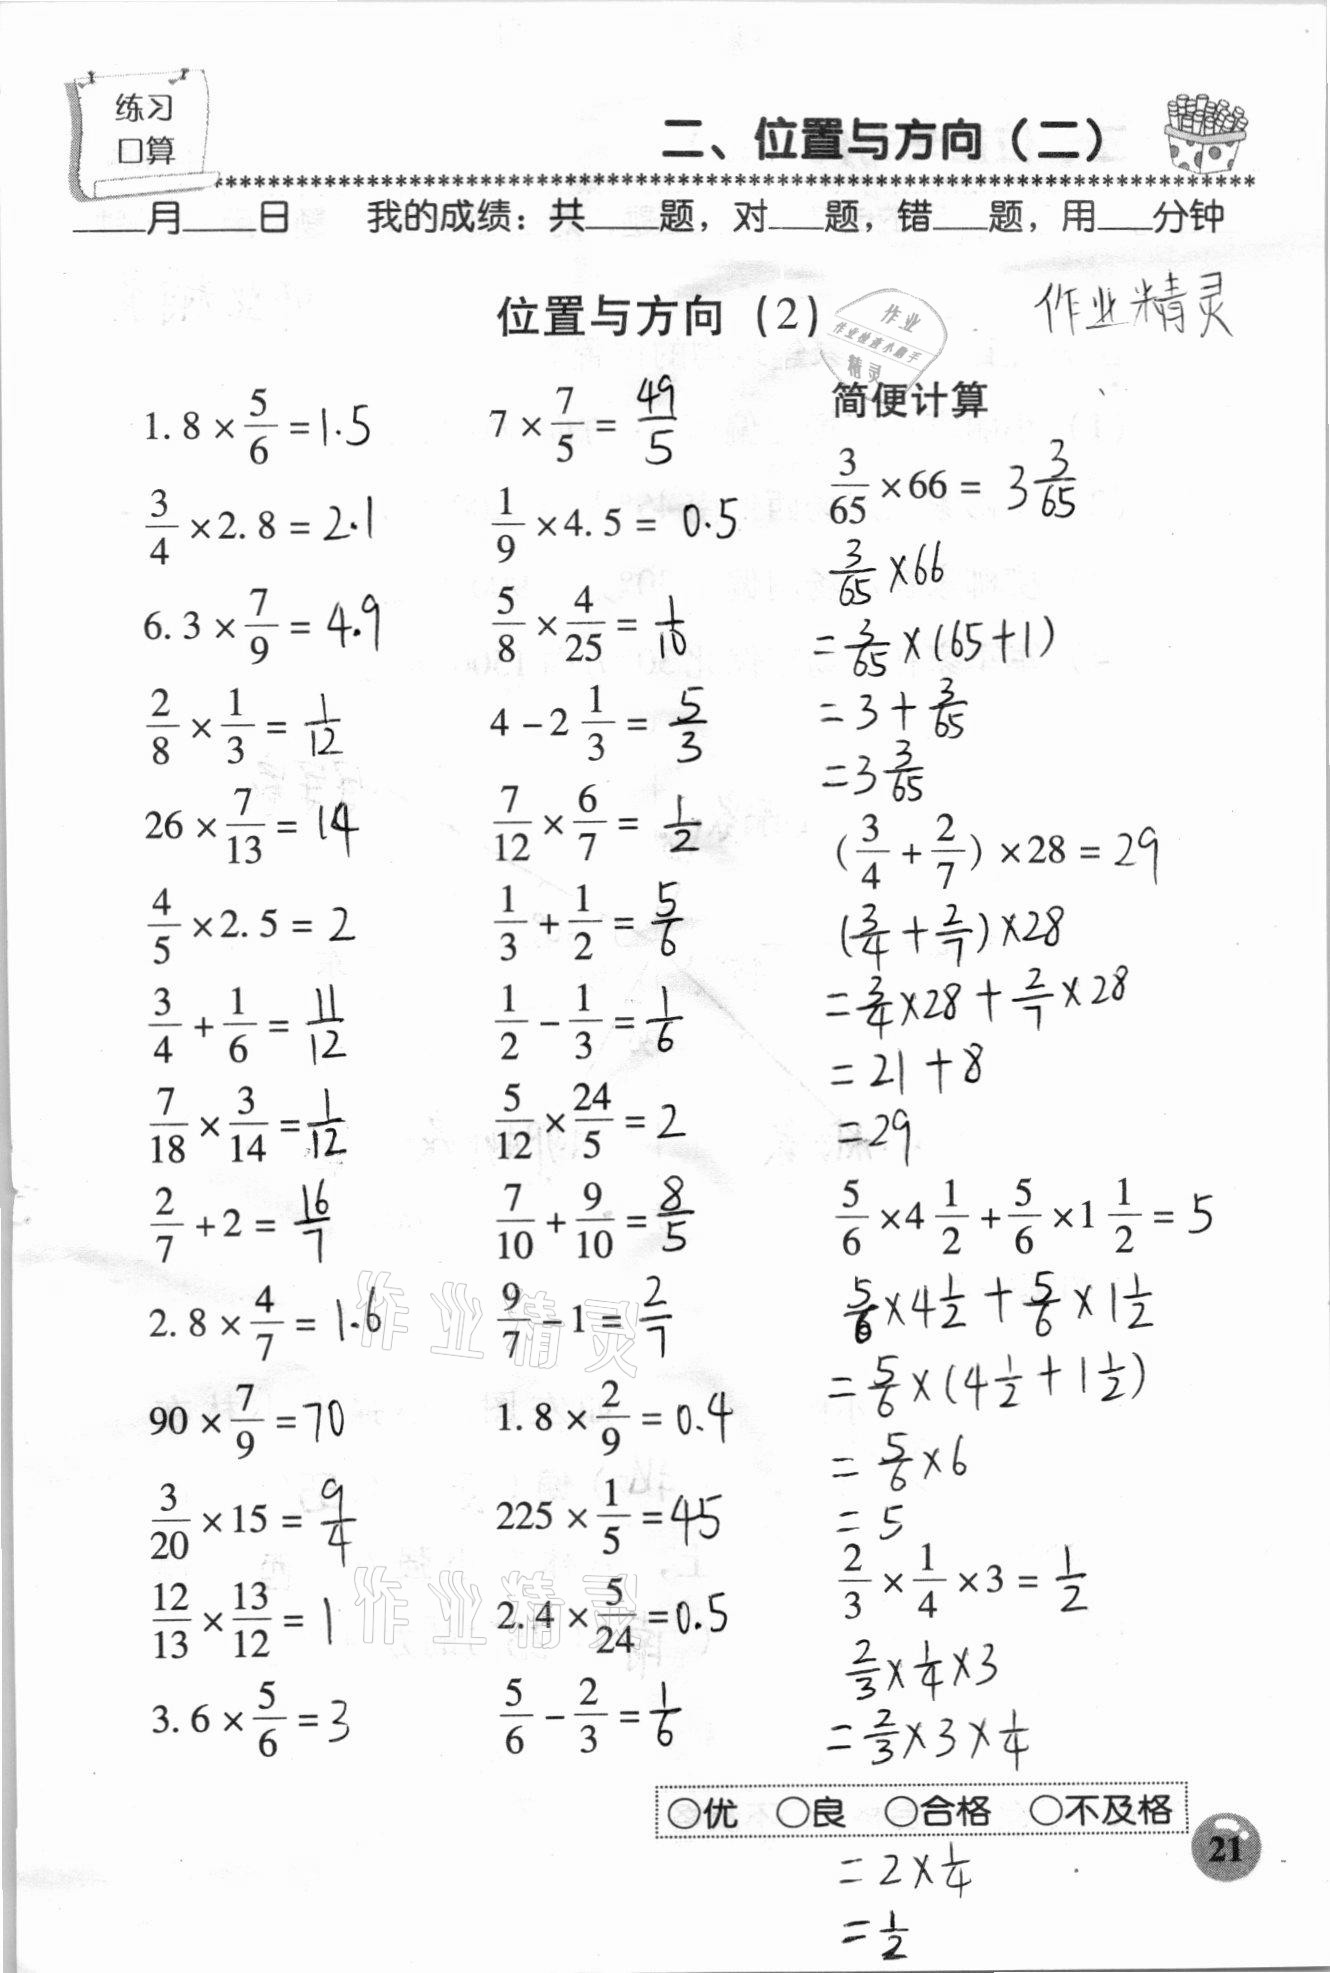 练习
口算
二、位置与方向（二）
____月____日 我的成绩：共____题，对___题，错___题，用___分钟
位置与方向（2）
作业
作业检查小助手
精灵
作业精灵
1.8 × 5/6 = 1.5
3/4 × 2.8 = 2.1
6.3 × 7/9 = 4.9
2/8 × 1/3 = 1/12
26 × 7/13 = 14
4/5 × 2.5 = 2
3/4 + 1/6 = 11/12
7/18 × 3/14 = 1/12
2/7 + 2 = 16/7
2.8 × 4/7 = 1.6
90 × 7/9 = 70
3/20 × 15 = 9/4
12/13 × 13/12 = 1
3.6 × 5/6 = 3
7 × 7/5 = 49/5
1/9 × 4.5 = 0.5
5/8 × 4/25 = 1/10
4 - 2 1/3 = 5/3
7/12 × 6/7 = 1/2
1/3 + 1/2 = 5/6
1/2 - 1/3 = 1/6
5/12 × 24/5 = 2
7/10 + 9/10 = 8/5
9/7 - 1 = 2/7
1.8 × 2/9 = 0.4
225 × 1/5 = 45
2.4 × 5/24 = 0.5
5/6 - 2/3 = 1/6
简便计算
3/65 × 66 = 3 3/65
3/65 × 66
= 3/65 × (65 + 1)
= 3 + 3/65
= 3 3/65
(3/4 + 2/7) × 28 = 29
(3/4 + 2/7) × 28
= 3/4 × 28 + 2/7 × 28
= 21 + 8
= 29
5/6 × 4 1/2 + 5/6 × 1 1/2 = 5
5/6 × 4 1/2 + 5/6 × 1 1/2
= 5/6 × (4 1/2 + 1 1/2)
= 5/6 × 6
= 5
2/3 × 1/4 × 3 = 1/2
2/3 × 1/4 × 3
= 2/3 × 3 × 1/4
○优 ○良 ○合格 ○不及格
21
= 2 × 1/4
= 1/2
作业精灵
作业精灵